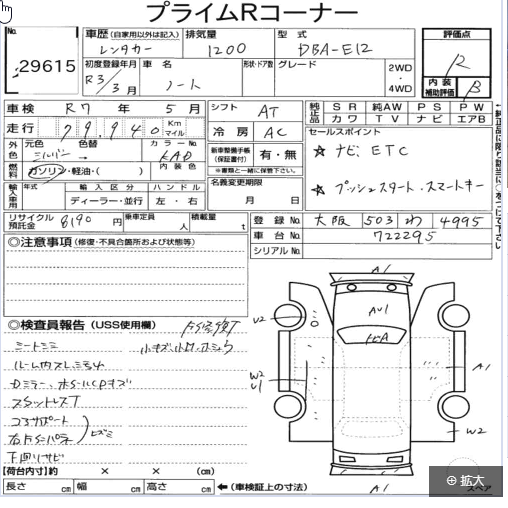 プライムRコーナー
No. 29615
車歴 (自家用以外は記入) 排気量 型式 評価点
レンタカー 1200 DBA-E12 R
初度登録年月 車名 形状・ドア数 グレード 2WD・4WD
R3/3月 ノート
内装補助評価 B
車検 R7年5月 シフト AT
純正品 SR 純AW PS PW
カワ TV ナビ エアB
走行 79,940 Km マイル 冷房 AC
セールスポイント
外色 元色 色替 カラーNo.
シルバー KAD
☆ナビ、ETC
燃料 ガソリン・軽油・( ) 内装色
新車整備手帳 (保証書付) 有・無
※書類と一緒に保管下さい。
☆プッシュスタート.スマートキー
輸入車用 年式 輸入区分 ハンドル
ディーラー・並行 左・右
名義変更期限
月 日
←純正品に限り該当に○をつけて下さい
リサイクル預託金 8190円 乗車定員 人 積載量 t
登録No. 大阪 503 わ 4995
車台No. 722295
シリアルNo.
◎注意事項 (修復・不具合箇所および状態等)
◎検査員報告 (USS使用欄)
シートシミ
スタットレスT
コアサポート
下回りサビ
【荷台内寸】約 × × (cm)
長さ cm 幅 cm 高さ cm ←(車検証上の寸法)
A1
U2
AU1
W2
U1
A1
W2
A1
スペア
拡大